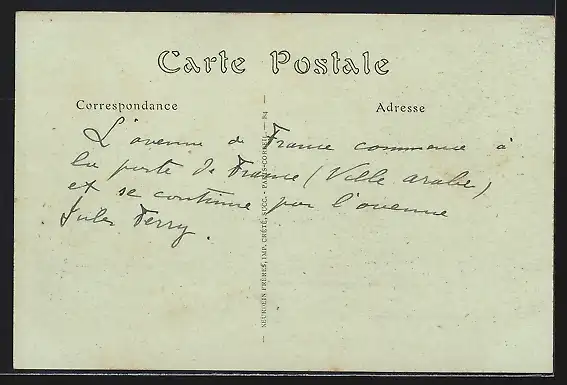 Carte Postale
Correspondance
Adresse
L'avenue de France commence à
la porte de France (Ville arabe)
et se continue par l'avenue
Jules Ferry.
NEURDEIN FRÈRES, IMP. CRÉTÉ, SUCC. - PARIS-CORBEIL. - 84